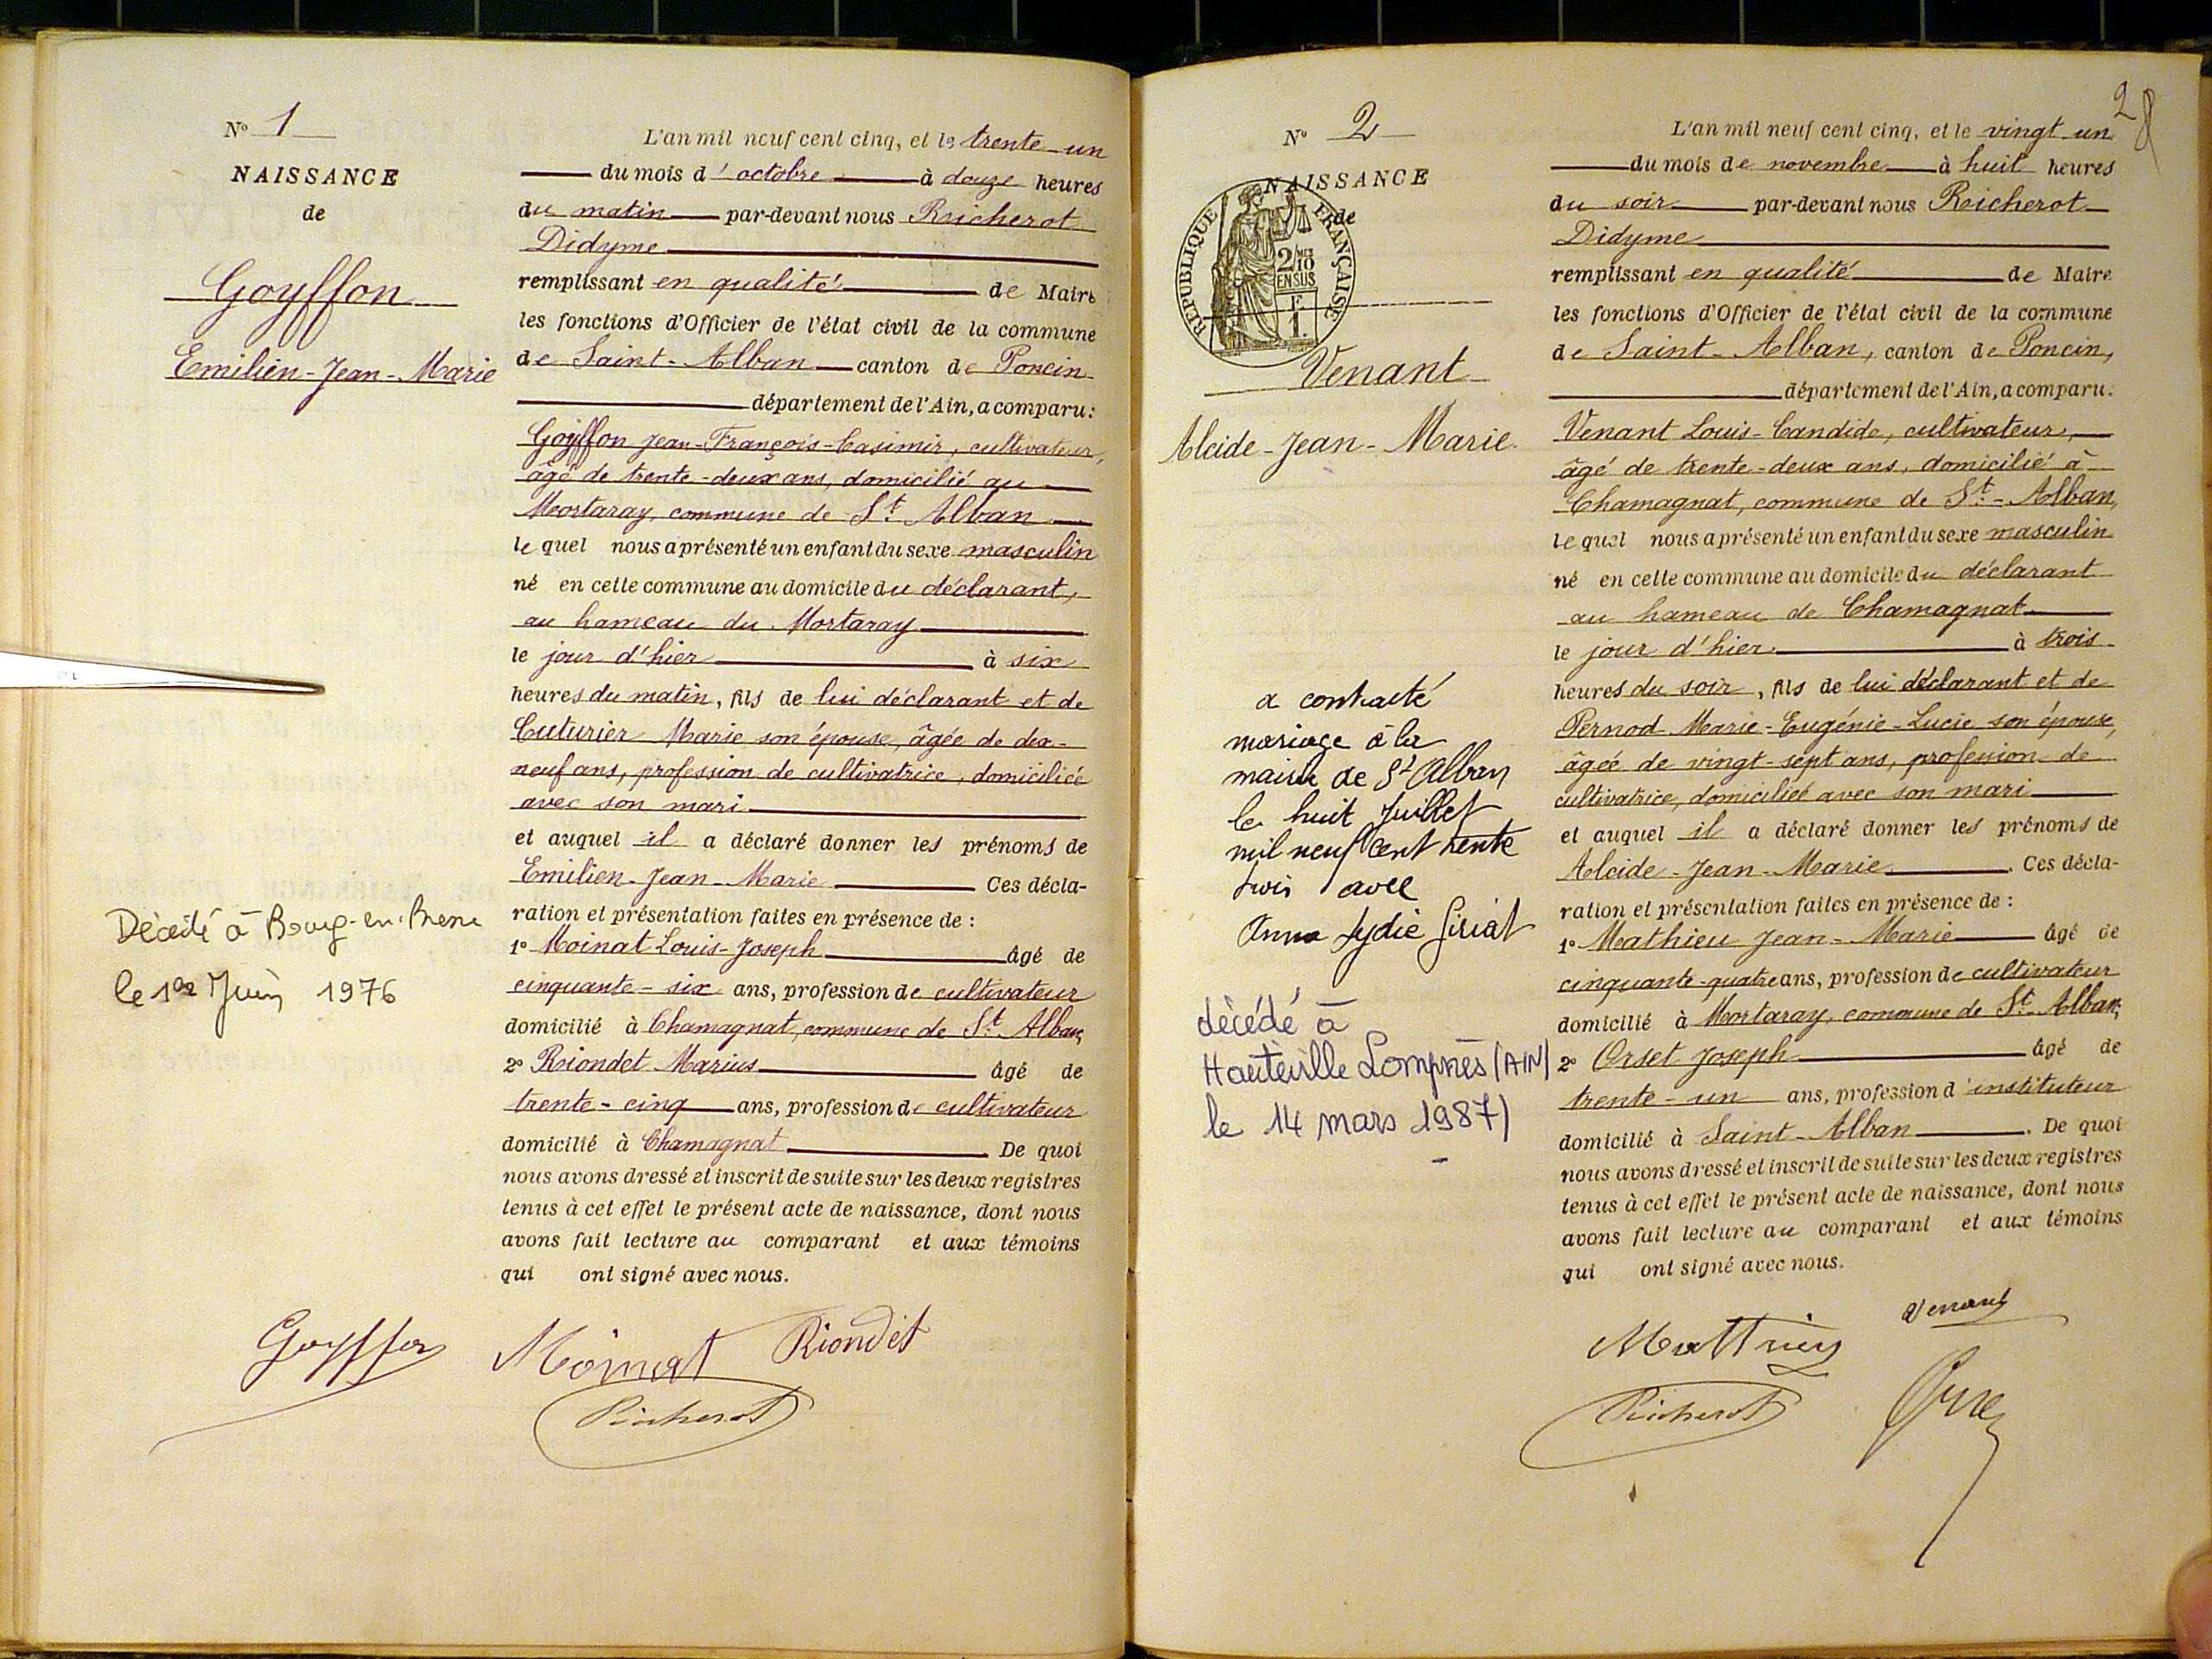 N° 1
NAISSANCE
de
Goyffon
Emilien-Jean-Marie
L'an mil neuf cent cinq, et le trente-un
du mois d'octobre à douze heures
du matin par-devant nous Richerot
Didyme
remplissant en qualité de Maire
les fonctions d'Officier de l'état civil de la commune
de Saint-Alban canton de Poncin
département de l'Ain, a comparu:
Goyffon Jean-François-Casimir, cultivateur,
âgé de trente-deux ans, domicilié au
Mortaray, commune de St. Alban
lequel nous a présenté un enfant du sexe masculin
né en cette commune au domicile du déclarant,
au hameau du Mortaray
le jour d'hier à six
heures du matin, fils de lui déclarant et de
Cuturier Marie son épouse, âgée de dix-
neuf ans, profession de cultivatrice, domiciliée
avec son mari
et auquel il a déclaré donner les prénoms de
Emilien-Jean-Marie Ces décla-
ration et présentation faites en présence de :
1° Moinat Louis-Joseph âgé de
cinquante-six ans, profession de cultivateur
domicilié à Chamagnat, commune de St. Alban,
2° Riondet Marius âgé de
trente-cinq ans, profession de cultivateur
domicilié à Chamagnat De quoi
nous avons dressé et inscrit de suite sur les deux registres
tenus à cet effet le présent acte de naissance, dont nous
avons fait lecture au comparant et aux témoins
qui ont signé avec nous.
Décédé à Bourg-en-Bresse
le 1er Juin 1976
Goyffon Moinat Riondet
Richerot
2
N° 2
NAISSANCE
de
REPUBLIQUE FRANÇAISE
2/10 EN SUS
F
1.
Venant
Alcide-Jean-Marie
a contracté
mariage à la
mairie de St Alban
le huit Juillet
mil neuf cent trente
trois avec
Anna Lydie Giriat
décédé à
Hauteville Lompnès (AIN)
le 14 mars 1987)
L'an mil neuf cent cinq, et le vingt-un
du mois de novembre à huit heures
du soir par-devant nous Richerot
Didyme
remplissant en qualité de Maire
les fonctions d'Officier de l'état civil de la commune
de Saint-Alban, canton de Poncin,
département de l'Ain, a comparu:
Venant Louis-Candide, cultivateur,
âgé de trente-deux ans, domicilié à
Chamagnat, commune de St.-Alban,
lequel nous a présenté un enfant du sexe masculin
né en cette commune au domicile du déclarant
au hameau de Chamagnat
le jour d'hier à trois
heures du soir, fils de lui déclarant et de
Pernod Marie-Eugénie-Lucie son épouse,
âgée de vingt-sept ans, profession de
cultivatrice, domiciliée avec son mari
et auquel il a déclaré donner les prénoms de
Alcide-Jean-Marie. Ces décla-
ration et présentation faites en présence de :
1° Mathieu Jean-Marie âgé de
cinquante-quatre ans, profession de cultivateur
domicilié à Mortaray, commune de St. Alban,
2° Orset Joseph âgé de
trente-un ans, profession d'instituteur
domicilié à Saint-Alban. De quoi
nous avons dressé et inscrit de suite sur les deux registres
tenus à cet effet le présent acte de naissance, dont nous
avons fait lecture au comparant et aux témoins
qui ont signé avec nous.
Venant
Mathieu
Richerot